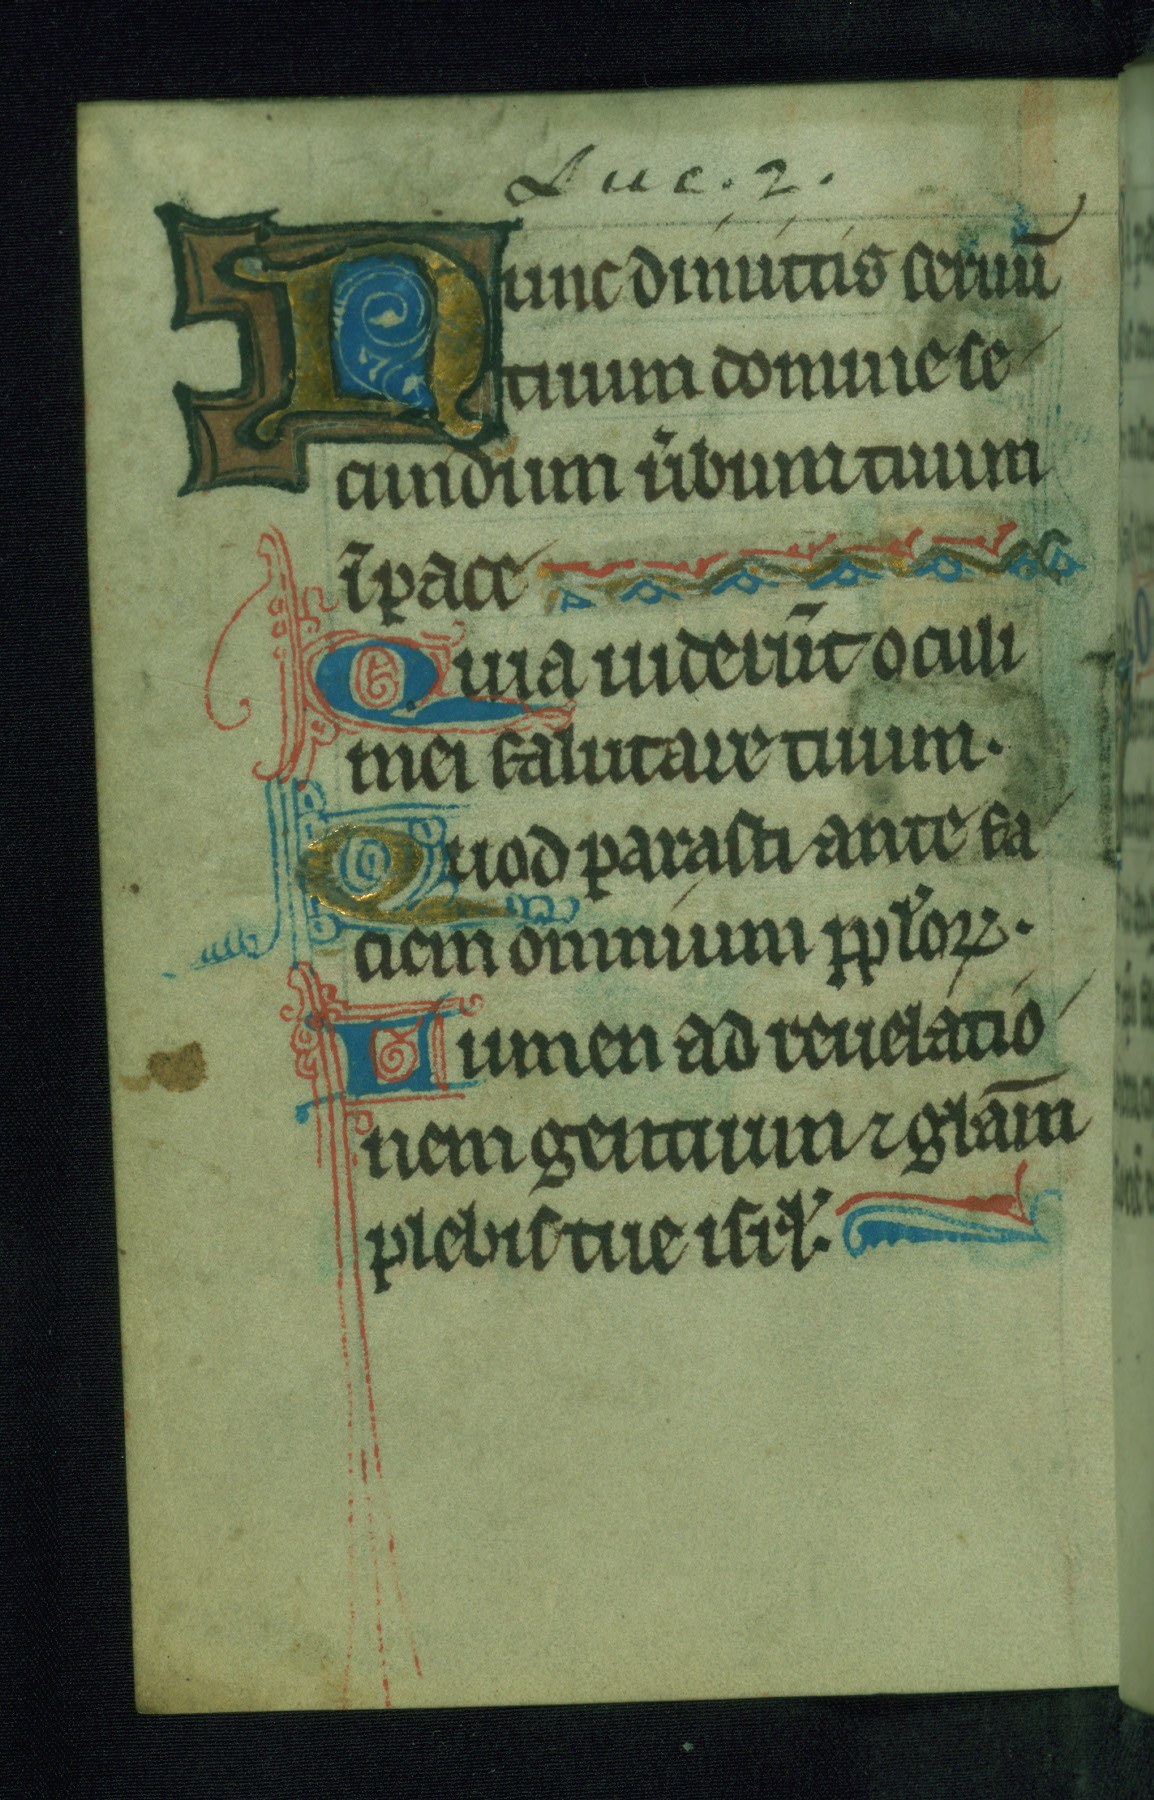 Luc. 2.
Nunc dimittis seruū
tuum domine se
cundum ūbum tuum
ī pace
Quia uiderūt oculi
mei salutare tuum.
Quod parasti ante fa
ciem omnium pplorꝝ.
Lumen ad reuelatio
nem gentium ⁊ glām
plebis tue isrl.